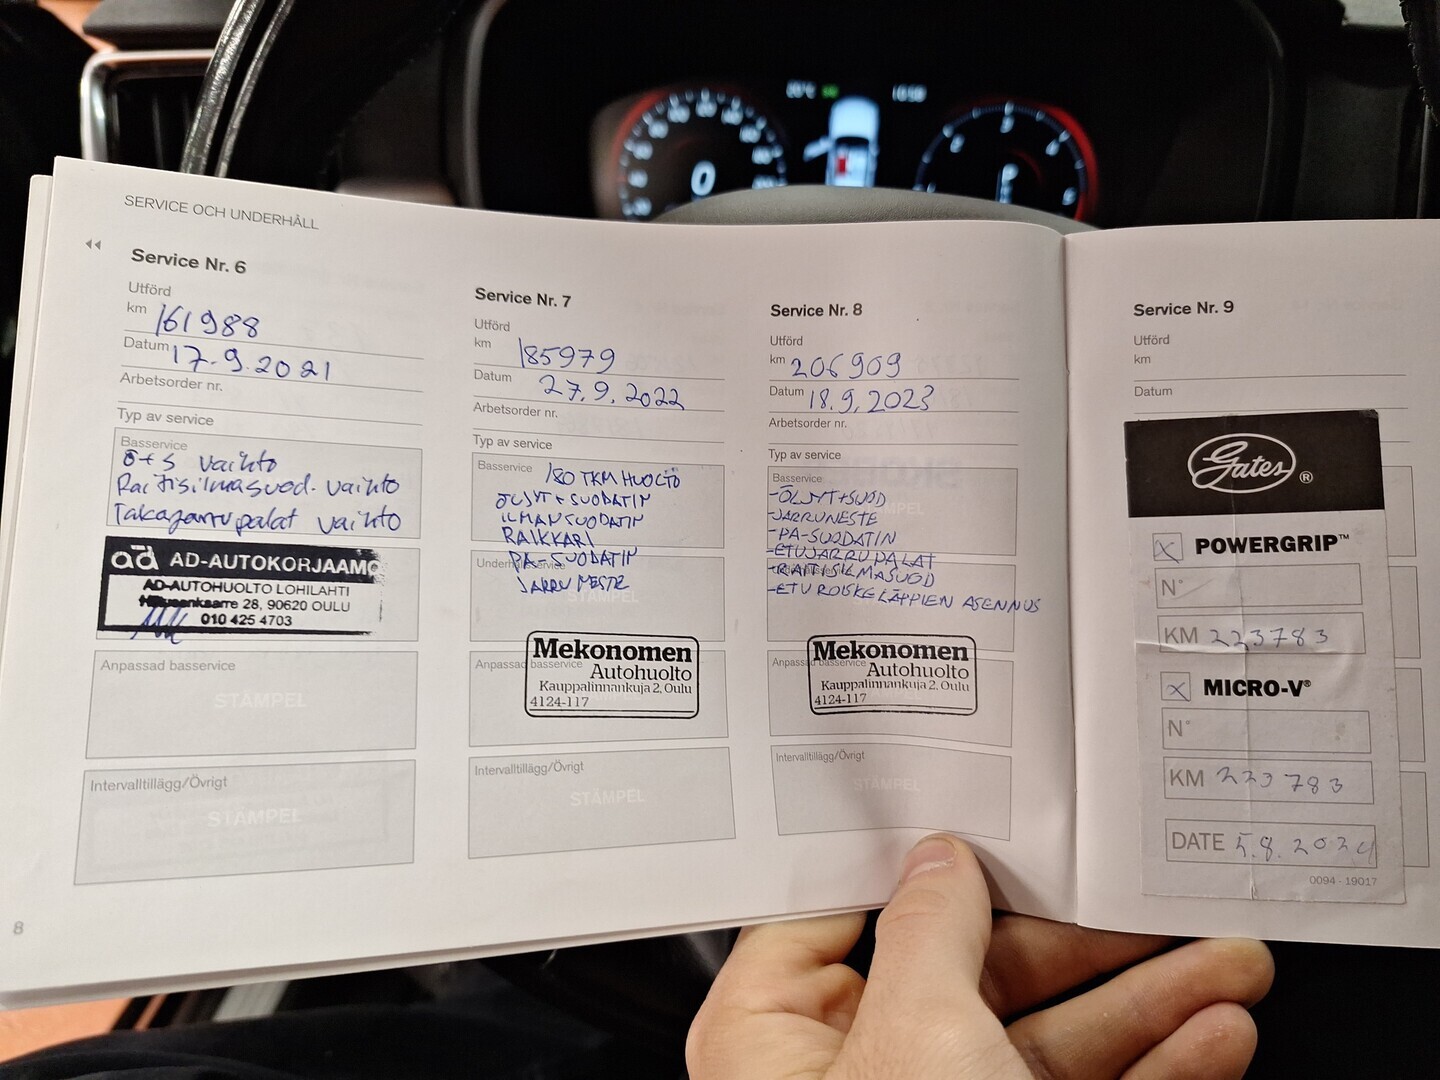 SERVICE OCH UNDERHÅLL
Service Nr. 6
Utförd
km 161988
Datum 17.9.2021
Arbetsorder nr.
Typ av service
Basservice
Ö+S vaihto
Raitisilmasuod. vaihto
Takajarrupalat vaihto
ad AD-AUTOKORJAAMO
AD-AUTOHUOLTO LOHILAHTI
28, 90620 OULU
010 425 4703
Anpassad basservice
STÄMPEL
Intervalltillägg/Övrigt
STÄMPEL
8
Service Nr. 7
Utförd
km 185979
Datum 27.9.2022
Arbetsorder nr.
Typ av service
Basservice
180 TKM HUOLTO
ÖLJYT+SUODATIN
ILMANSUODATIN
RAIKKARI
PA-SUODATIN
JARRUNESTE
STÄMPEL
Anpassad basservice
Mekonomen
Autohuolto
Kauppalinnankuja 2, Oulu
4124-117
Intervalltillägg/Övrigt
STÄMPEL
Service Nr. 8
Utförd
km 206909
Datum 18.9.2023
Arbetsorder nr.
Typ av service
Basservice
-ÖLJYT+SUOD
-JARRUNESTE
-PA-SUODATIN
-ETUJARRUPALAT
-RAITISILMASUOD
-ETUROISKELÄPPIEN ASENNUS
Anpassad basservice
Mekonomen
Autohuolto
Kauppalinnankuja 2, Oulu
4124-117
Intervalltillägg/Övrigt
STÄMPEL
Service Nr. 9
Utförd
km
Datum
Gates®
POWERGRIP™
N°
KM 223783
MICRO-V®
N°
KM 223783
DATE 5.8.2024
0094 - 19017
0